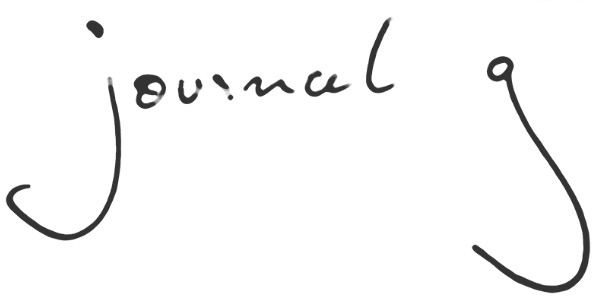 journal g